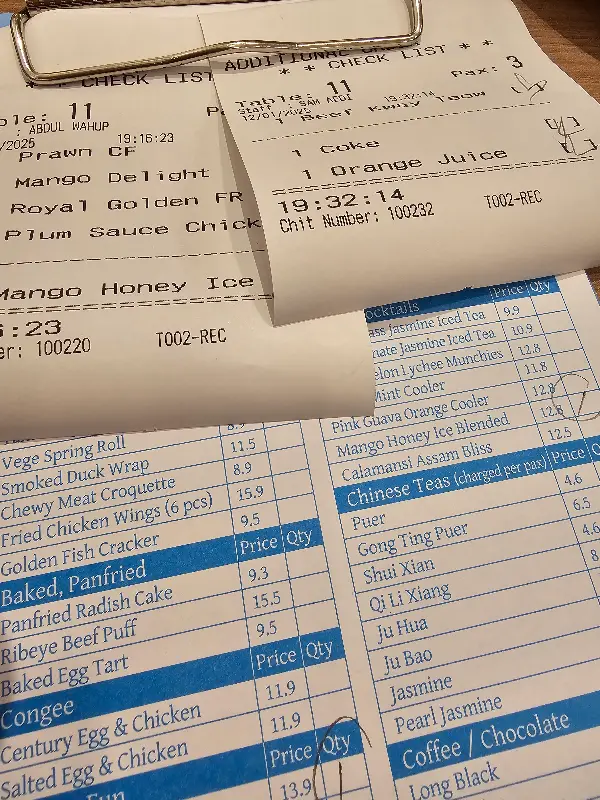 * * CHECK LIST
Table: 11
: ABDUL WAHUP
/2025 19:16:23
Prawn CF
Mango Delight
Royal Golden FR
Plum Sauce Chick
Mango Honey Ice
:23
er: 100220 T002-REC
ADDITIONAL
* * CHECK LIST * *
Table: 11 Pax: 3
Staff : SAM
12/01/2025 19:32:14
1 Beef
1 Coke
1 Orange Juice
19:32:14
Chit Number: 100232 T002-REC
Vege Spring Roll
Smoked Duck Wrap 11.5
Chewy Meat Croquette 8.9
Fried Chicken Wings (6 pcs) 15.9
Golden Fish Cracker 9.5
Baked, Panfried Price Qty
Panfried Radish Cake 9.3
Ribeye Beef Puff 15.5
Baked Egg Tart 9.5
Congee Price Qty
Century Egg & Chicken 11.9
Salted Egg & Chicken 11.9
Fun Price Qty
13.9
ocktails Price Qty
ass Jasmine Iced Tea 9.9
nate Jasmine Iced Tea 10.9
elon Lychee Munchies 12.8
Mint Cooler 11.8
Pink Guava Orange Cooler 12.8
Mango Honey Ice Blended 12.8
Calamansi Assam Bliss 12.5
Chinese Teas (charged per pax) Price
Puer 4.6
Gong Ting Puer 6.5
Shui Xian 4.6
Qi Li Xiang 8
Ju Hua
Ju Bao
Jasmine
Pearl Jasmine
Coffee / Chocolate
Long Black